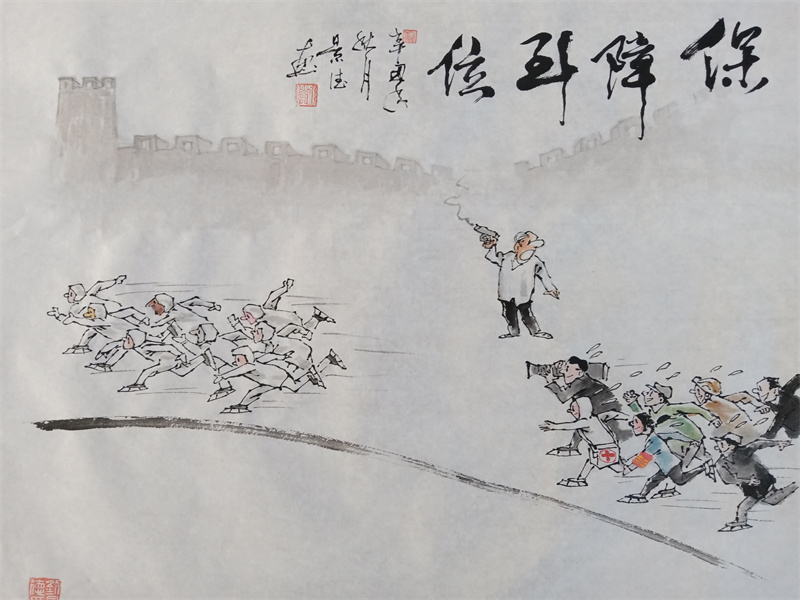 保障到位
辛丑
秋月
景德
画